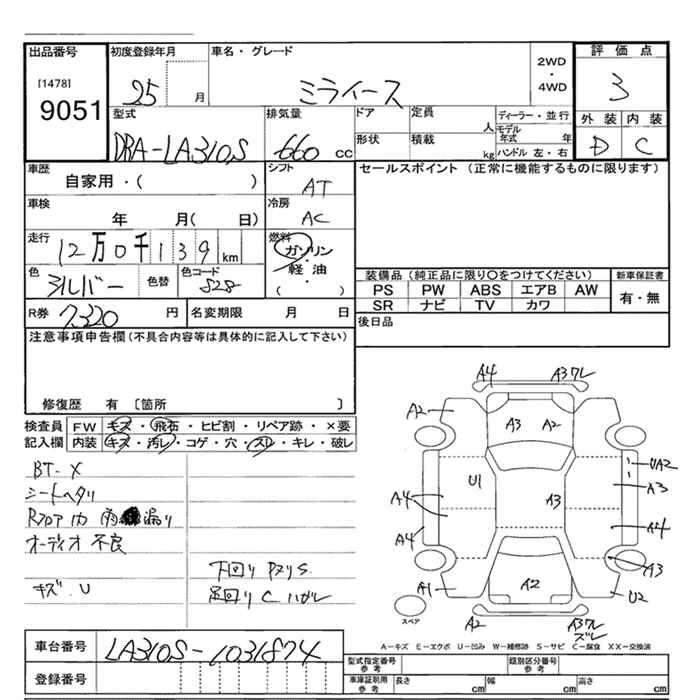 出品番号
[1478]
9051
初度登録年月
25 月
車名・グレード
ミライース
2WD
・
4WD
評価点
3
外装 内装
D C
型式
DBA-LA310S
排気量
660 cc
ドア
定員
人
ディーラー・並行
モデル年式 年
形状
積載
kg
ハンドル 左・右
車歴
自家用・( )
シフト
AT
セールスポイント (正常に機能するものに限ります)
車検
年 月( 日)
冷房
AC
走行
12万0千139km
燃料
ガソリン
・
軽油
( )
色
シルバー
色替
色コード
S28
装備品 (純正品に限り〇をつけてください)
新車保証書
PS PW ABS エアB AW
SR ナビ TV カワ
有・無
R券 7,320 円
名変期限 月 日
後日品
注意事項申告欄(不具合内容等は具体的に記入して下さい)
修復歴 有 〔箇所 〕
検査員記入欄
FW キズ・飛石・ヒビ割・リペア跡・×要
内装 キズ・汚レ・コゲ・穴・スレ・キレ・破レ
BT-X
シートヘタリ
Rフロア 雨漏り
オーディオ不良
キズ.U
下回り サビS
足回り C ハガレ
A4 A3ワレ
A2
A3 A2
U1
UA2
A3
A3
A4
A4
A4
A3
A1
A2
U2
A2
A3ワレ
ズレ
スペア
A-キズ E-エクボ U-凹み W-補修跡 S-サビ C-腐食 XX-交換済
車台番号
LA310S-1031874
登録番号
型式指定番号
参考
類別区分番号
参考
車庫証明用
参考
長さ cm
幅 cm
高さ cm